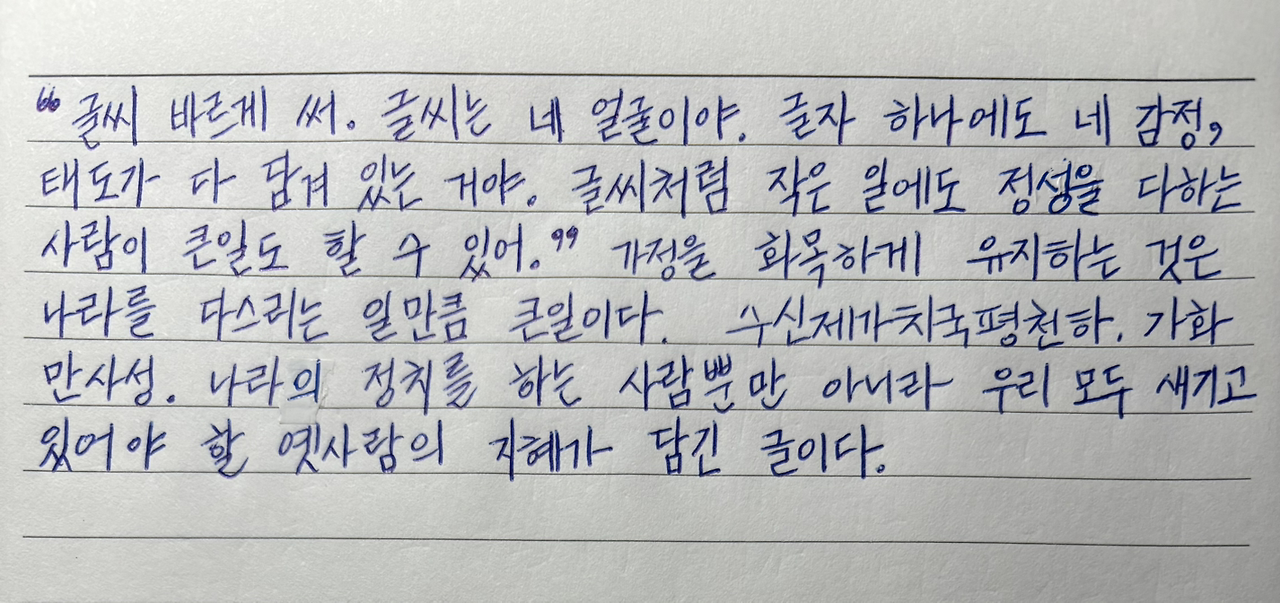 “글씨 바르게 써. 글씨는 네 얼굴이야. 글자 하나에도 네 감정,
태도가 다 담겨 있는 거야. 글씨처럼 작은 일에도 정성을 다하는
사람이 큰일도 할 수 있어.” 가정을 화목하게 유지하는 것은
나라를 다스리는 일만큼 큰일이다. 수신제가치국평천하. 가화
만사성. 나라의 정치를 하는 사람뿐만 아니라 우리 모두 새기고
있어야 할 옛사람의 지혜가 담긴 글이다.